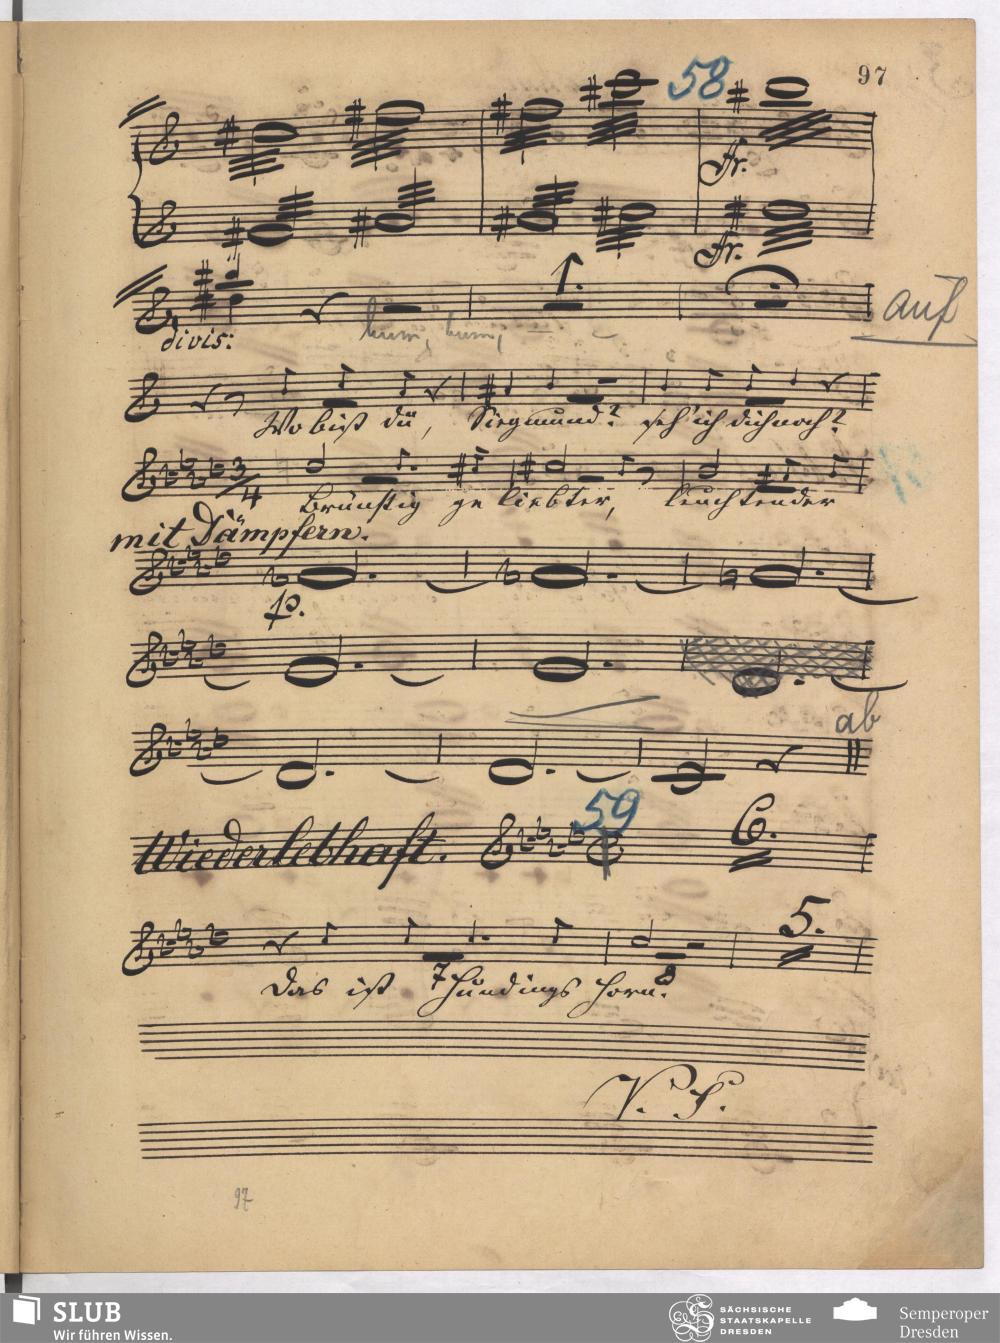 58
97
Tr.
Tr.
1.
divis:
auf
Wo bist du, Siegmund? seh' ich dich noch?
3/4
Brünstig geliebter, leuchtender
mit Dämpfern.
p.
ab
59
Wieder lebhaft.
6.
5.
7 8
Das ist Hundings Horn.
V. S.
97
SLUB
Wir führen Wissen.
SÄCHSISCHE
STAATSKAPELLE
DRESDEN
Semperoper
Dresden